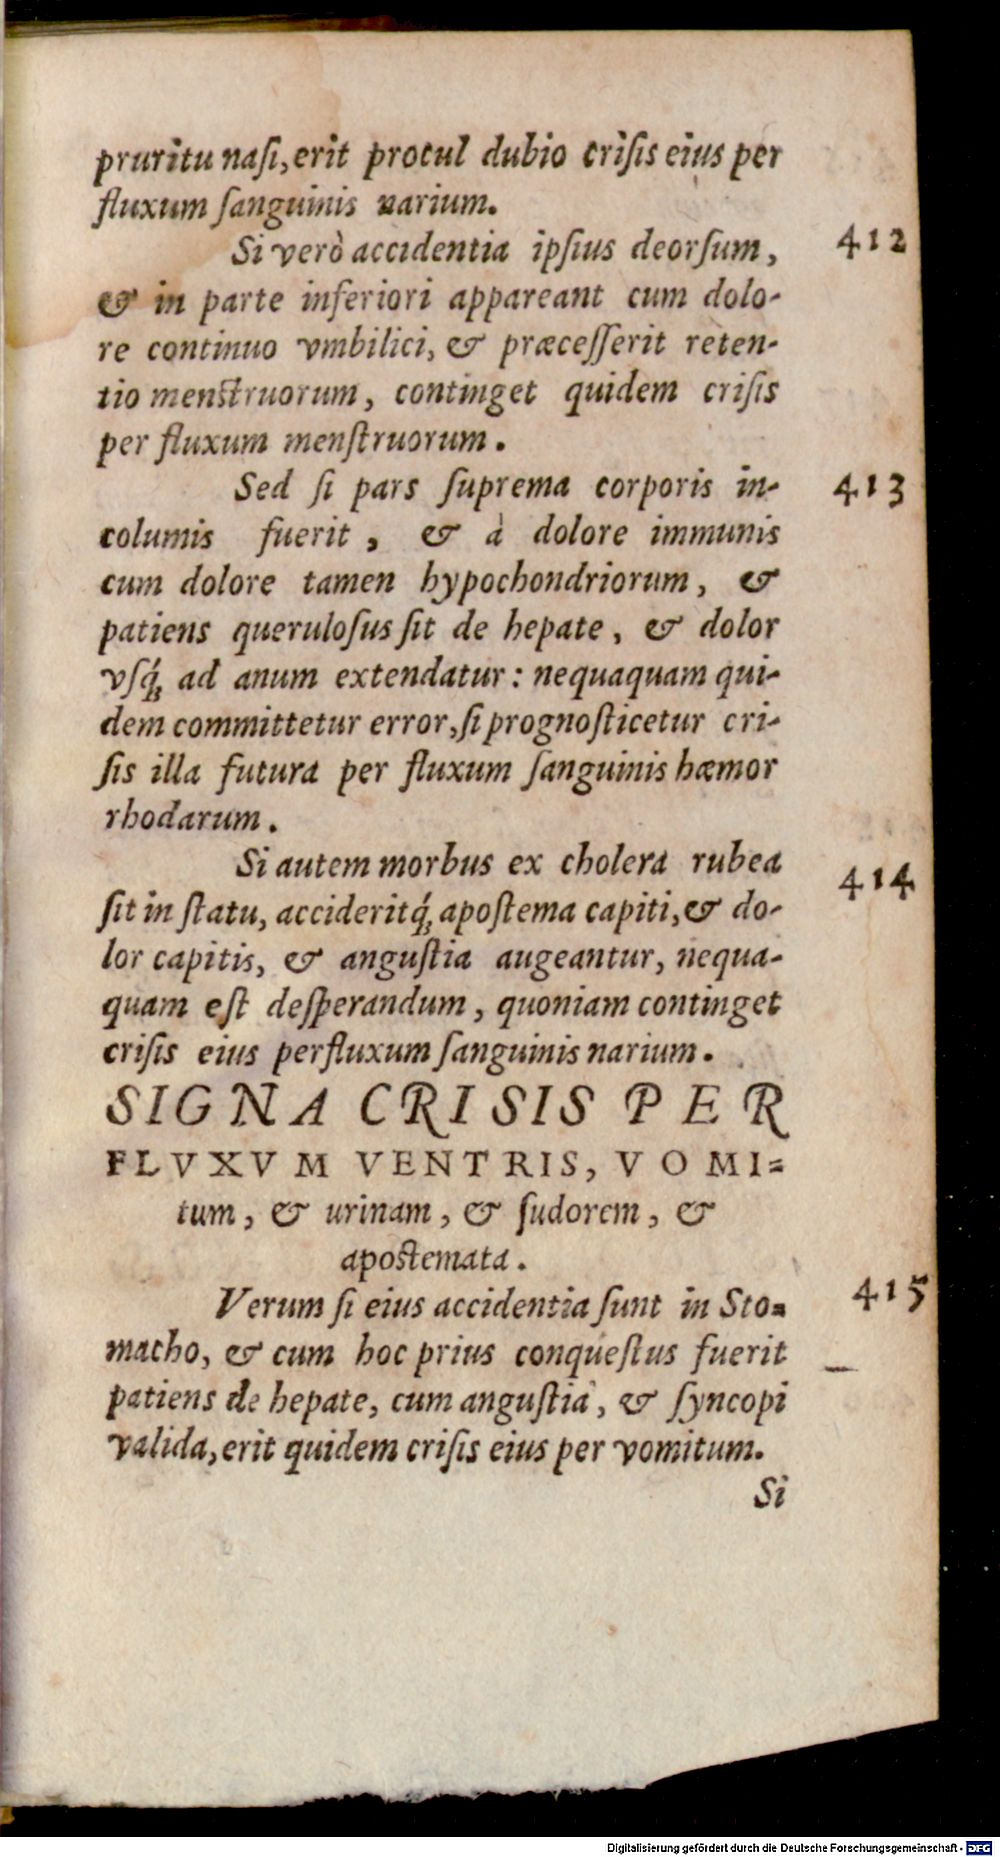 pruritu naſi, erit procul dubio criſis eius per
fluxum ſanguinis narium.
Si verò accidentia ipſius deorſum, 412
& in parte inferiori appareant cum dolo-
re continuo vmbilici, & præceſſerit reten-
tio menſtruorum, continget quidem criſis
per fluxum menſtruorum.
Sed ſi pars ſuprema corporis in- 413
columis fuerit, & à dolore immunis
cum dolore tamen hypochondriorum, &
patiens queruloſus ſit de hepate, & dolor
vſq́; ad anum extendatur: nequaquam qui-
dem committetur error, ſi prognoſticetur cri-
ſis illa futura per fluxum ſanguinis hæmor
rhodarum.
Si autem morbus ex cholera rubea 414
ſit in ſtatu, accideritq́; apoſtema capiti, & do-
lor capitis, & anguſtia augeantur, nequa-
quam eſt deſperandum, quoniam continget
criſis eius perfluxum ſanguinis narium.
SIGNA CRISIS PER
FLVXVM VENTRIS, VOMI=
tum, & urinam, & ſudorem, &
apoſtemata.
Verum ſi eius accidentia ſunt in Sto= 415
macho, & cum hoc prius conqueſtus fuerit
patiens de hepate, cum anguſtia, & ſyncopi
valida, erit quidem criſis eius per vomitum.
Si
Digitalisierung gefördert durch die Deutsche Forschungsgemeinschaft - DFG